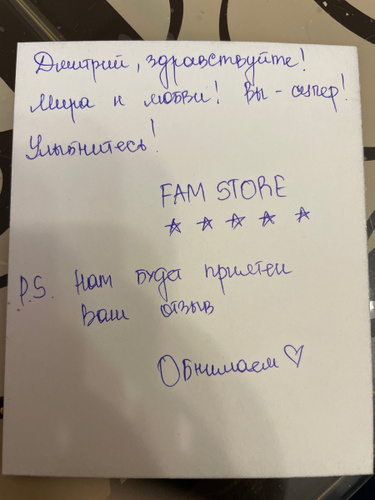 Дмитрий, здравствуйте!
Мира и любви! Вы - супер!
Улыбнитесь!
FAM STORE
☆ ☆ ☆ ☆ ☆
P.S. Нам будет приятен
Ваш отзыв
Обнимаем ♡